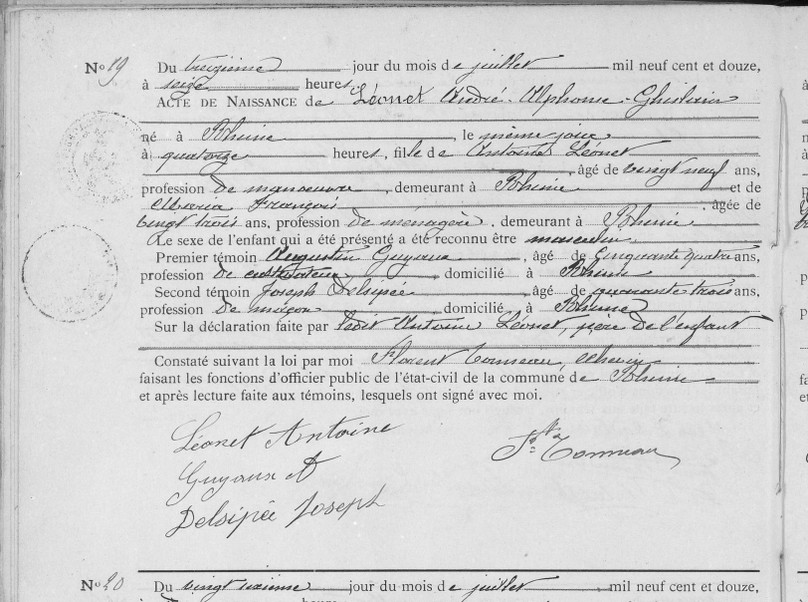 No 19 Du treizième jour du mois de juillet mil neuf cent et douze,
à seize heures
ACTE DE NAISSANCE de Léonet André-Alphonse-Ghislain
né à Rhisne, le même jour
à quatorze heures, fils de Antoine Léonet
, âgé de vingt neuf ans,
profession de manoeuvre, demeurant à Rhisne et de
Maria François, âgée de
vingt trois ans, profession de ménagère, demeurant à Rhisne
Le sexe de l'enfant qui a été présenté a été reconnu être masculin.
Premier témoin Augustin Guyaux, âgé de Cinquante quatre ans,
profession de cultivateur, domicilié à Rhisne
Second témoin Joseph Delsipée âgé de quarante trois ans,
profession de maçon, domicilié à Rhisne
Sur la déclaration faite par ledit Antoine Léonet, père de l'enfant
Constaté suivant la loi par moi Florent Tonneau, échevin
faisant les fonctions d'officier public de l'état-civil de la commune de Rhisne
et après lecture faite aux témoins, lesquels ont signé avec moi.
Léonet Antoine
Guyaux A
Delsipée Joseph
Tonneau
No 20 Du vingt jour du mois de juillet mil neuf cent et douze,